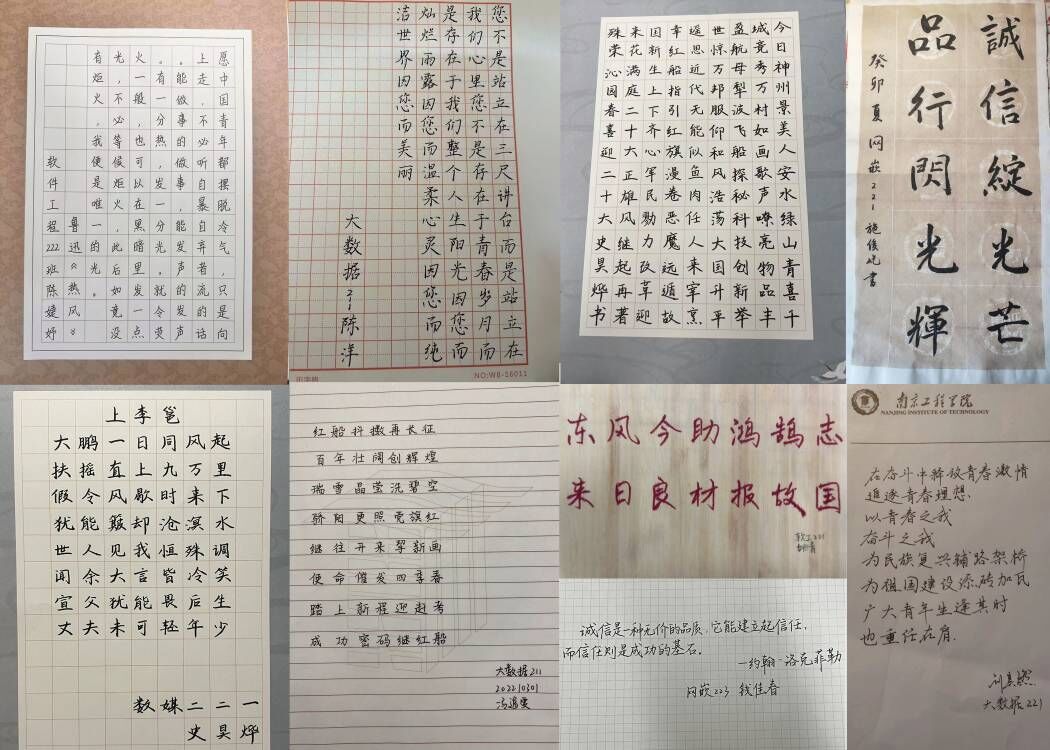 愿中国青年都摆脱冷气，只是向
上走，不必听自暴自弃者流的话
。能做事的做事，能发声的发声
。有一分热，发一分光。就令萤
火一般，也可以在黑暗里发一点
光，不必等候炬火，此后如竟没
有炬火，我便是唯一的光。
鲁迅《热风》
软件工程222班陈媛妤
您不是站立在三尺讲台而是站立在
我们心里您不是存在于青春岁月而
是存在于我们整个人生阳光因您而
灿烂雨露因您而温柔心灵因您而纯
洁世界因您而美丽
大数据212陈洋
NO:WB-16011
今日神州景美人安水绿山青喜千
城竞秀万村如画歌声嘹亮物品丰
盈航母犁波飞船探秘科技创新举
世惊万邦服仰和风浩荡大国升平
遥思近代无能似鱼肉任人来宰烹
幸红船指引红旗漫卷恶魔远遁故
国新生上下齐心军民勠力改革迎
来花满庭二十大正雄风继起再著
殊荣沁园春喜迎二十大史昊烨书
誠信綻光芒
品行閃光輝
癸卯夏网嵌221施俊屹书
上李邕
大鹏一日同风起
扶摇直上九万里
假令风歇时来下
犹能簸却沧溟水
世人见我恒殊调
闻余大言皆冷笑
宣父犹能畏后生
丈夫未可轻年少
数媒二二一
史昊烨
红船抖擞再长征
百年壮阔创辉煌
瑞雪晶莹洗碧空
骄阳更照党旗红
继往开来挈新画
使命催发四季春
踏上新程迎赶考
成功密码继红船
大数据211
202210301
东风今助鸿鹄志
来日良材报故国
软工221
诚信是一种无价的品质，它能建立起信任，
而信任则是成功的基石。
—约翰·洛克菲勒
网嵌223 钱佳春
南京工程学院
NANJING INSTITUTE OF TECHNOLOGY
在奋斗中释放青春激情
追逐青春理想.
以青春之我
奋斗之我
为民族复兴铺路架桥
为祖国建设添砖加瓦
广大青年生逢其时
也重任在肩.
大数据221